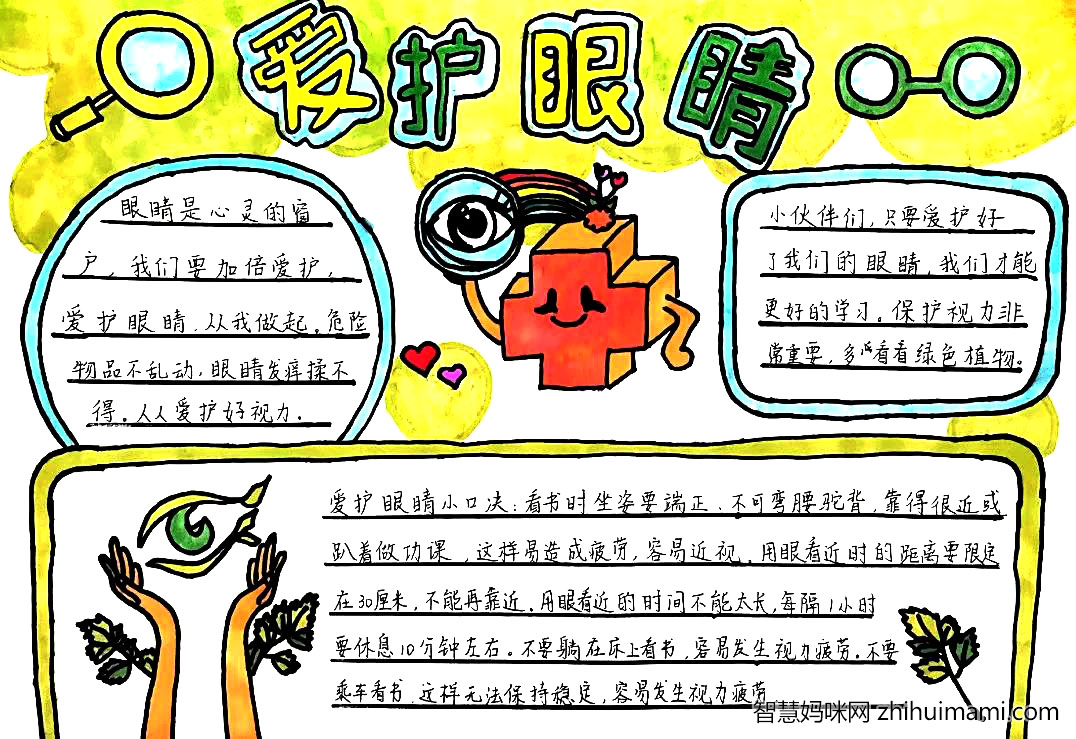 爱护眼睛
眼睛是心灵的窗
户，我们要加倍爱护，
爱护眼睛，从我做起。危险
物品不乱动，眼睛发痒揉不
得。人人爱护好视力。
小伙伴们，只要爱护好
了我们的眼睛，我们才能
更好的学习。保护视力非
常重要，多看看绿色植物。
爱护眼睛小口决：看书时坐姿要端正、不可弯腰驼背，靠得很近或
趴着做功课，这样易造成疲劳，容易近视。用眼看近时的距离要限定
在30厘米，不能再靠近。用眼看近的时间不能太长，每隔1小时
要休息10分钟左右。不要躺在床上看书，容易发生视力疲劳。不要
乘车看书，这样无法保持稳定，容易发生视力疲劳
智慧妈咪网 zhihuimami.com